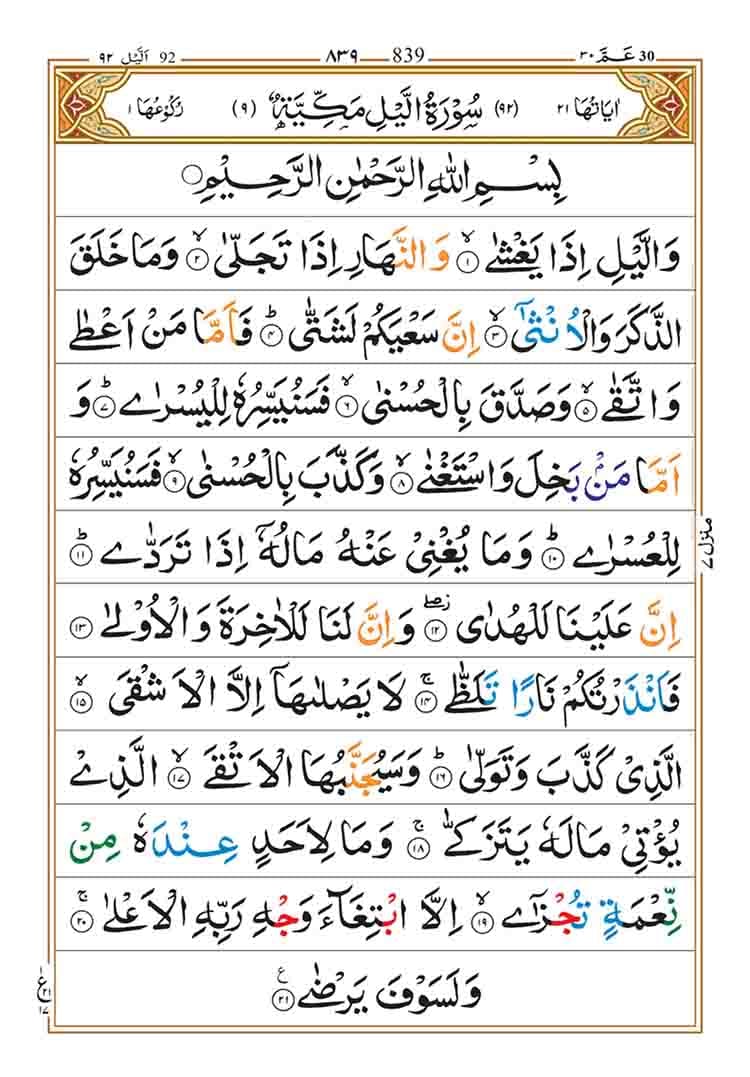 30 عَمَّ ٣٠ 839 ٨٣٩ 92 اَلَّيْل ٩٢
اٰيَاتُهَا ٢١ (٩٢) سُوْرَةُ الَّيْلِ مَكِّيَّةٌ (٩) رُكُوْعُهَا ١
بِسْمِ اللّٰهِ الرَّحْمٰنِ الرَّحِيْمِ ○
وَالَّيْلِ اِذَا يَغْشٰىۙ ۝١ وَالنَّهَارِ اِذَا تَجَلّٰىۙ ۝٢ وَمَا خَلَقَ
الذَّكَرَ وَالْاُنْثٰۤىۙ ۝٣ اِنَّ سَعْيَكُمْ لَشَتّٰىؕ ۝٤ فَاَمَّا مَنْ اَعْطٰى
وَاتَّقٰىۙ ۝٥ وَصَدَّقَ بِالْحُسْنٰىۙ ۝٦ فَسَنُيَسِّرُهٗ لِلْيُسْرٰىؕ ۝٧ وَ
اَمَّا مَنْۢ بَخِلَ وَاسْتَغْنٰىۙ ۝٨ وَكَذَّبَ بِالْحُسْنٰىۙ ۝٩ فَسَنُيَسِّرُهٗ
لِلْعُسْرٰىؕ ۝١٠ وَمَا يُغْنِىْ عَنْهُ مَالُهٗۤ اِذَا تَرَدّٰىؕ ۝١١
اِنَّ عَلَيْنَا لَلْهُدٰىۖ ۝١٢ وَاِنَّ لَنَا لَلْاٰخِرَةَ وَالْاُوْلٰى ۝١٣
فَاَنْذَرْتُكُمْ نَارًا تَلَظّٰىۚ ۝١٤ لَا يَصْلٰىهَاۤ اِلَّا الْاَشْقَىۙ ۝١٥
الَّذِىْ كَذَّبَ وَتَوَلّٰىؕ ۝١٦ وَسَيُجَنَّبُهَا الْاَتْقَىۙ ۝١٧ الَّذِىْ
يُؤْتِىْ مَالَهٗ يَتَزَكّٰىۚ ۝١٨ وَمَا لِاَحَدٍ عِنْدَهٗ مِنْ
نِّعْمَةٍ تُجْزٰۤىۙ ۝١٩ اِلَّا ابْتِغَآءَ وَجْهِ رَبِّهِ الْاَعْلٰىۚ ۝٢٠
وَلَسَوْفَ يَرْضٰى ۝٢١ ع
منزل ٧
١ ع ٢١ ١٧